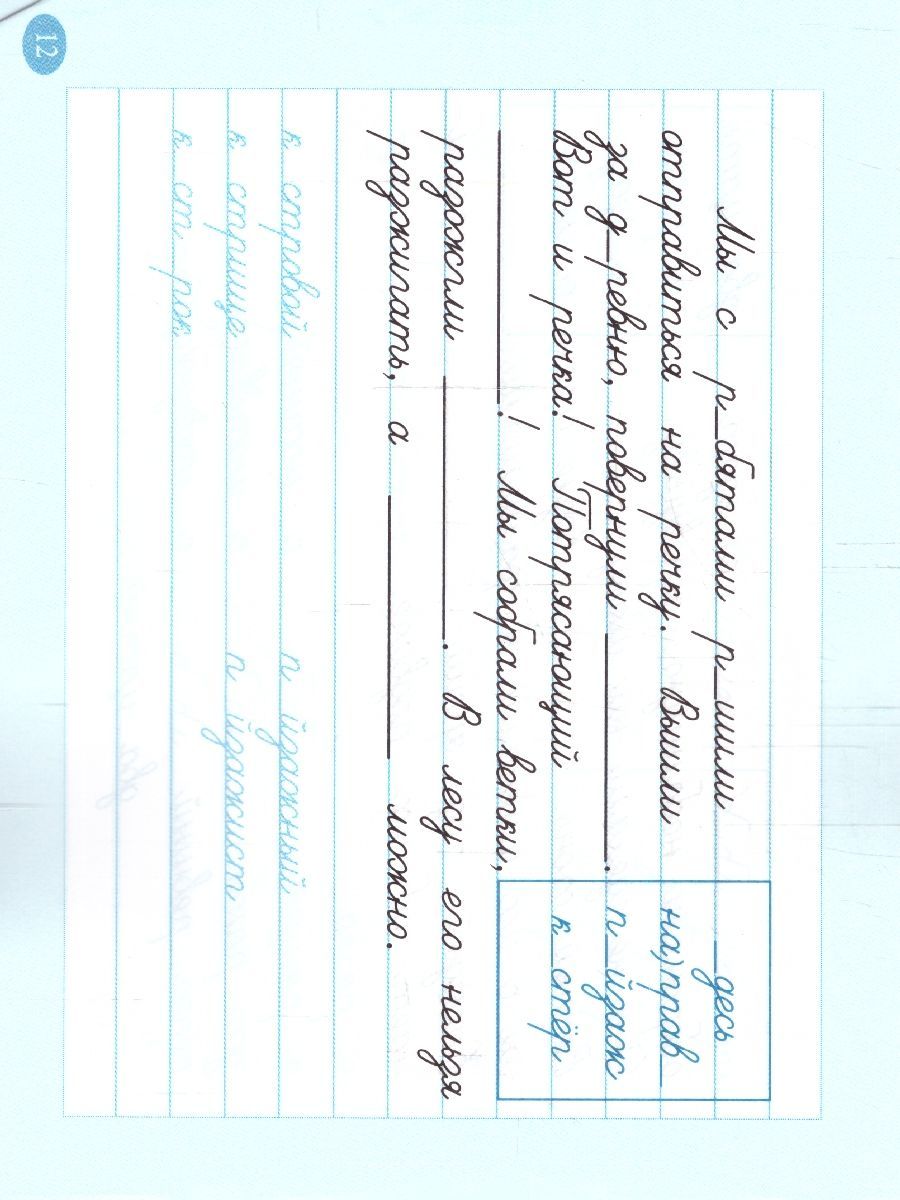 Мы с р_бятами р_шили
отправиться на речку. Вышли
за д_ревню, повернули ______.
Вот и речка! Потрясающий
______! Мы собрали ветки,
разожгли ______. В лесу его нельзя
разжигать, а ______ можно.
_десь
на)прав_
п_йзаж
к_стёр
к стровой
к стрище
к ст рок
п йзажный
п йзажист
12